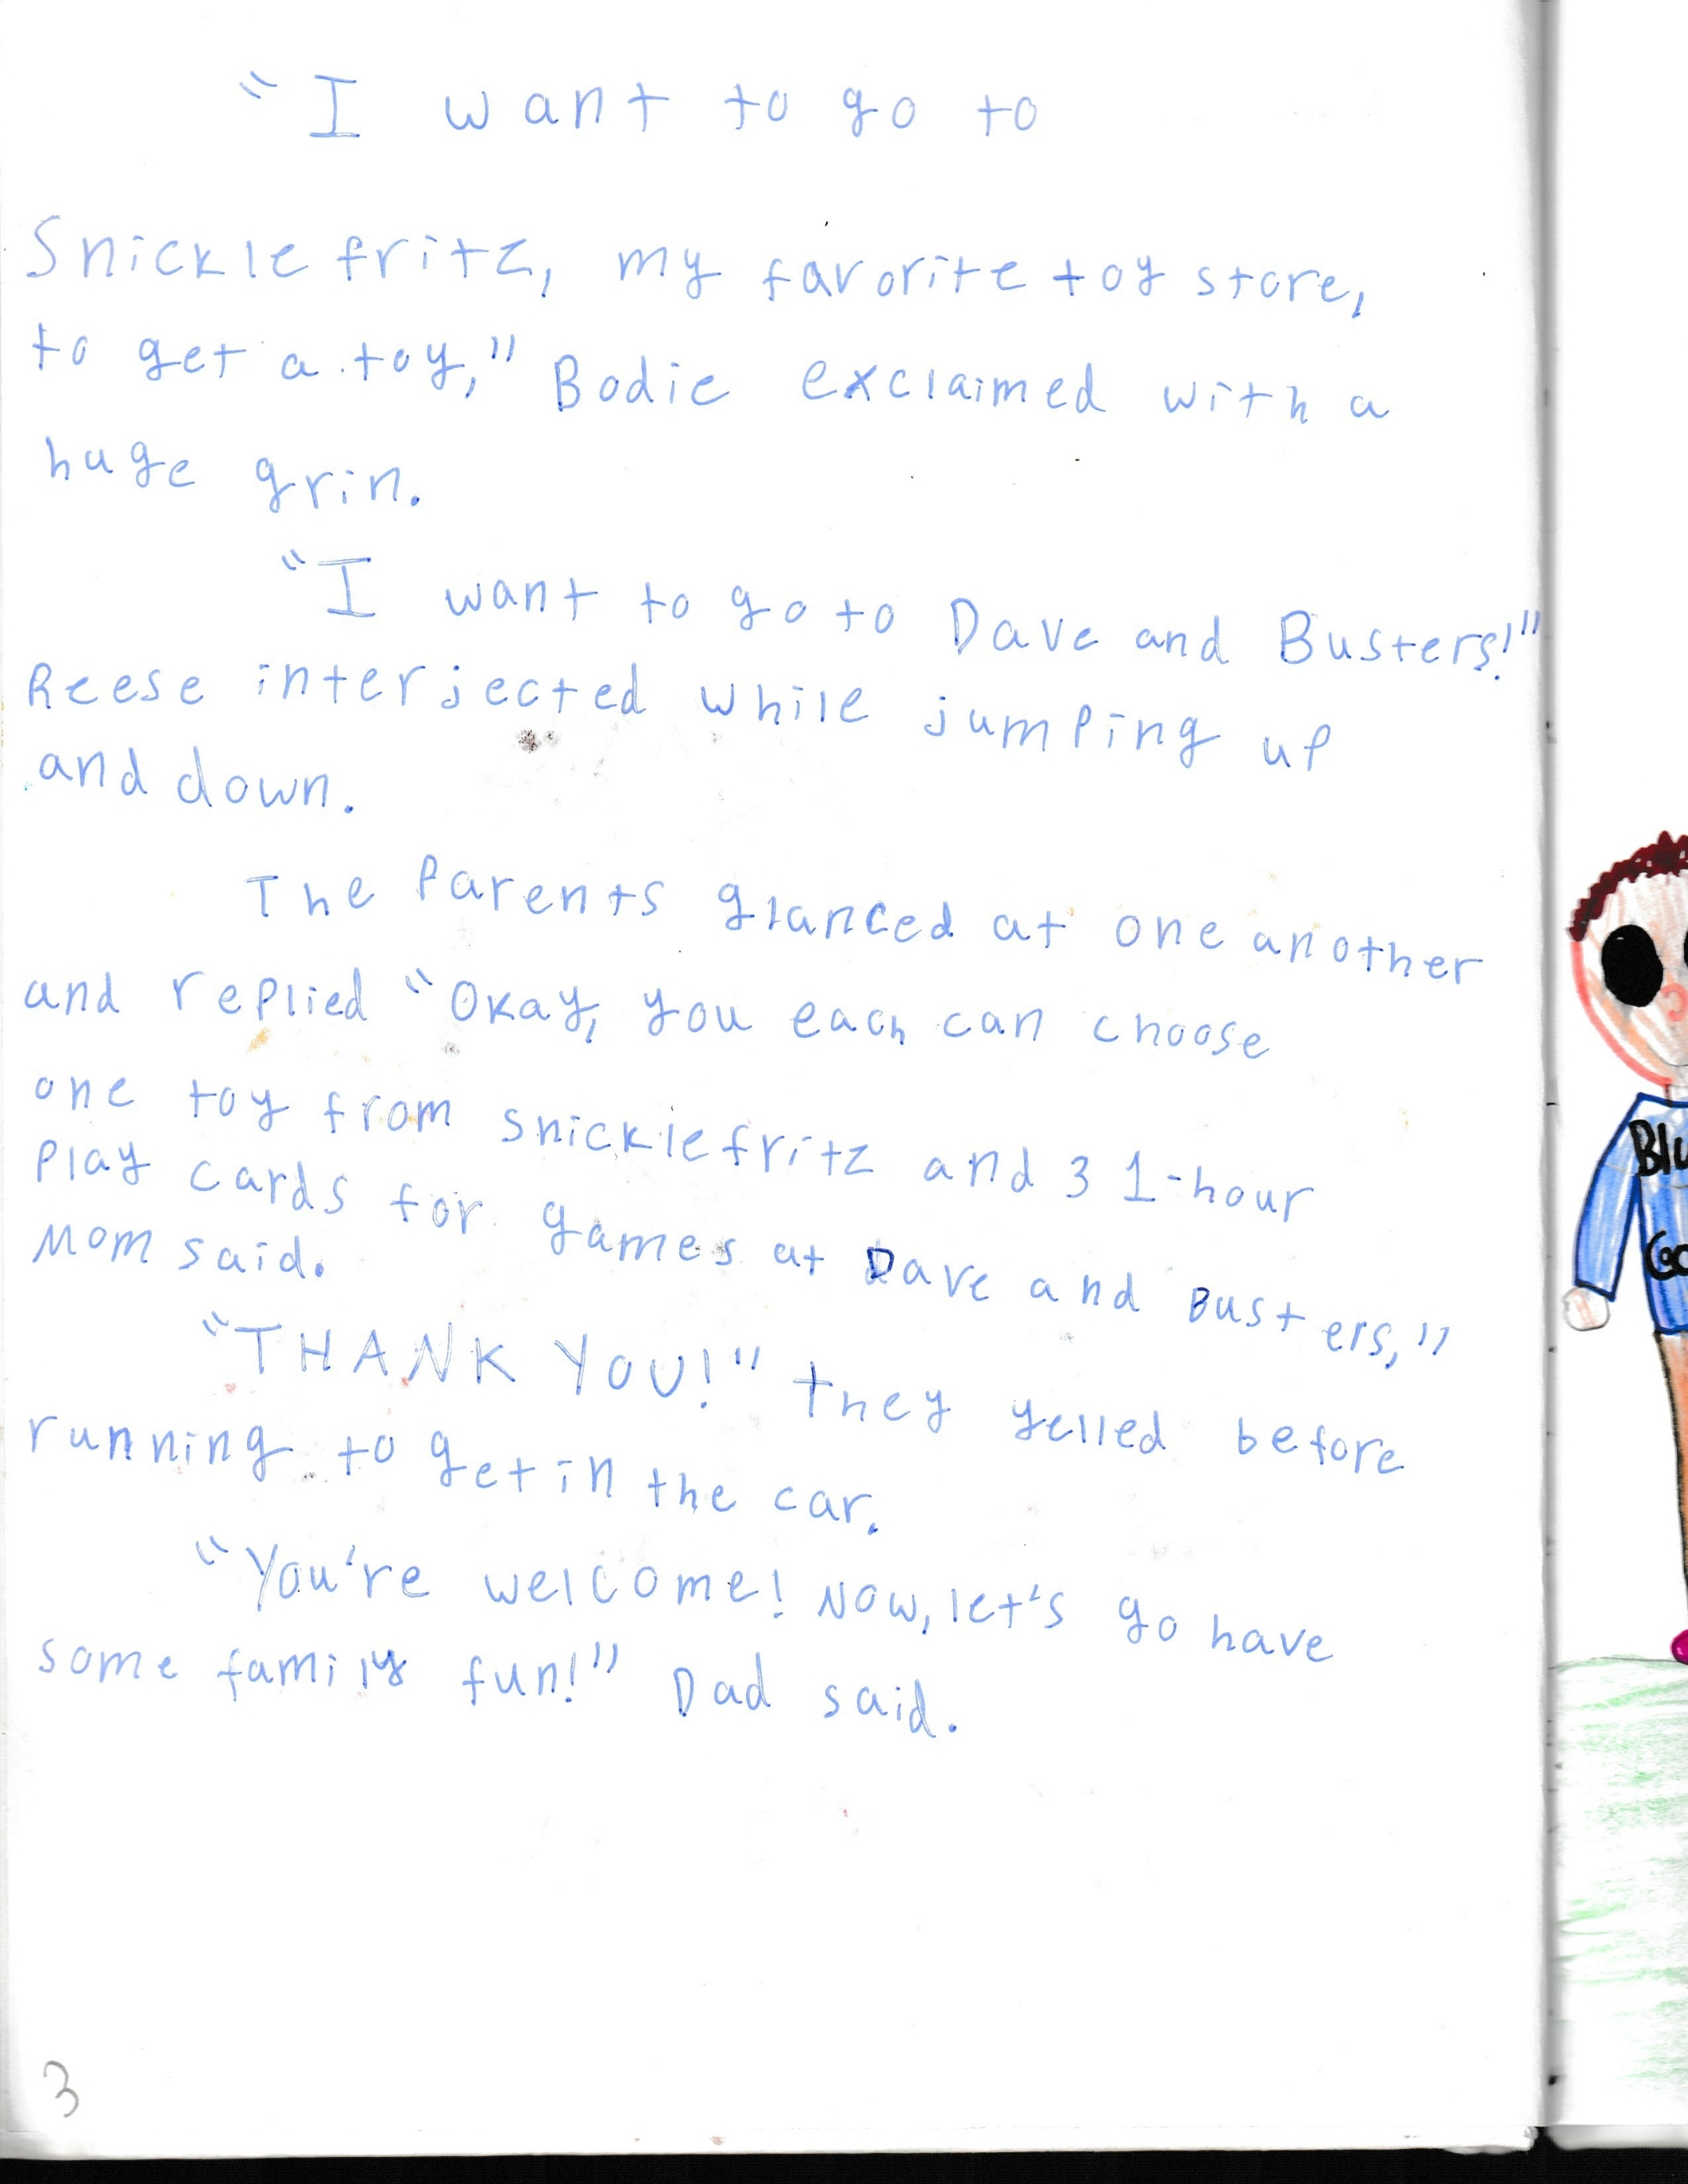 "I want to go to
Snicklefritz, my favorite toy store,
to get a toy," Bodie exclaimed with a
huge grin.
"I want to go to Dave and Busters!"
Reese interjected while jumping up
and down.
The Parents glanced at one another
and replied "Okay, you each can choose
one toy from snicklefritz and 3 1-hour
Play cards for games at Dave and Busters,"
Mom said.
"THANK YOU!" they yelled before
running to get in the car.
"You're welcome! Now, let's go have
some family fun!" Dad said.
3
Blu
Go